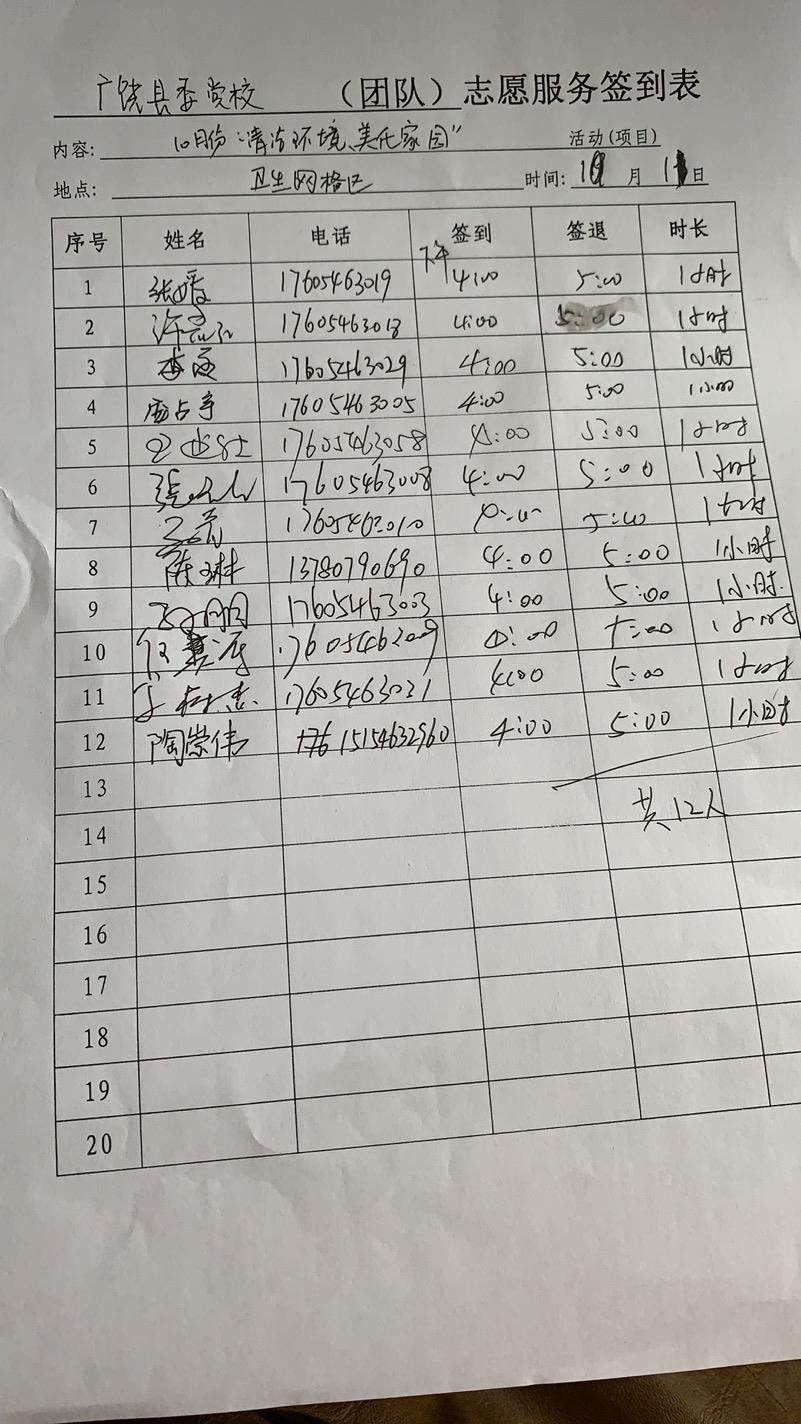 广饶县委党校 （团队）志愿服务签到表
内容: 10月份"清洁环境、美化家园" 活动(项目)
地点: 卫生网格区 时间: 10 月 日
序号 姓名 电话 签到 签退 时长
1 张媛 17605463019 下午4:00 5:00 1小时
2 17605463018 4:00 5:00 1小时
3 17605463029 4:00 5:00 1小时
4 17605463005 4:00 5:00 1小时
5 17605463058 4:00 5:00 1小时
6 17605463008 4:00 5:00 1小时
7 17605463010 4:00 5:00 1小时
8 陈琳 13780790690 4:00 5:00 1小时
9 17605463003 4:00 5:00 1小时.
10 17605463009 4:00 5:00 1小时
11 17605463021 4:00 5:00 1小时
12 陶崇伟 15154632960 4:00 5:00 1小时
13
共12人
14
15
16
17
18
19
20